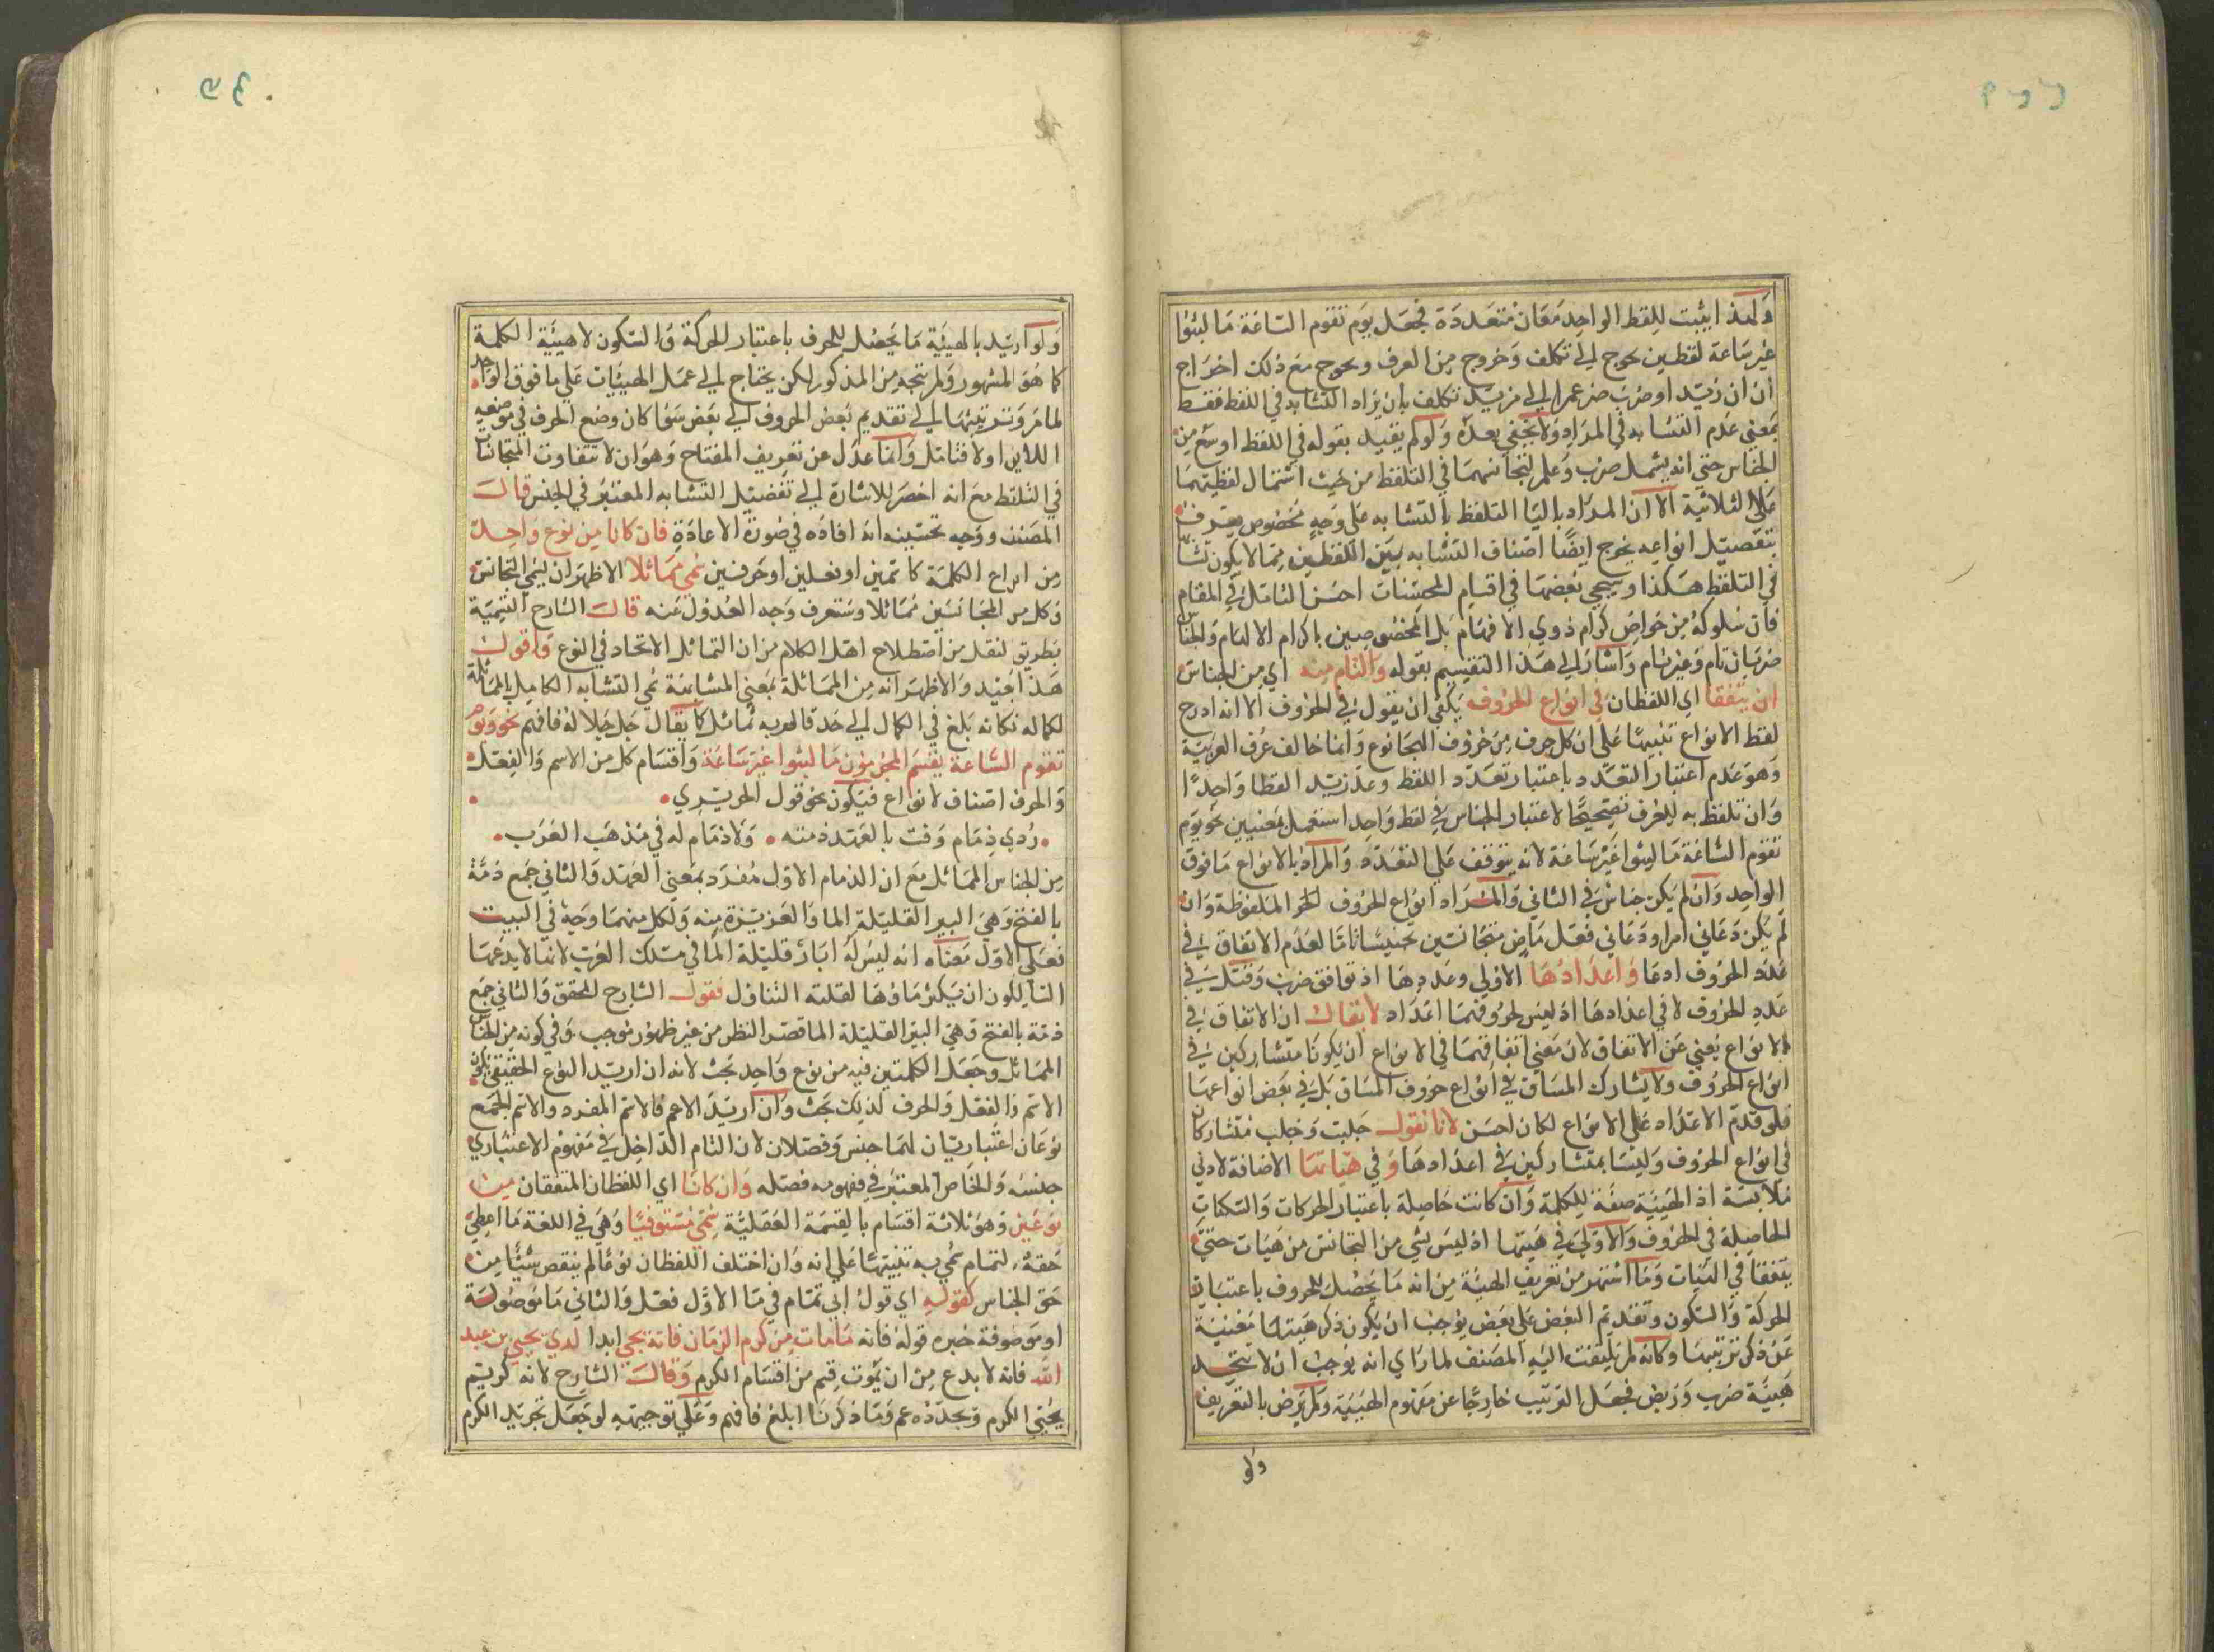 ولهذا يثبت للفظ الواحد معان متعددة فجعل يوم تقوم الساعة ما لبثوا
غير ساعة لفظين يحوج الى تكلف وخروج من العرف ويحوج مع ذلك اخراج
ان ان زيد او ضرب ضرعمرا الى مزيد تكلف بان يراد التشابه في اللفظ فقط
بمعنى عدم التشابه في المراد ولا يخفى بعده ولو لم يقيد بقوله في اللفظ اوسع من
الجناس حتى انه يشمل ضرب وعلم لتجانسهما في التلفظ من حيث اشتمال لفظيهما
على الثلاثية الا ان المراد باليا التلفظ بالتشابه على وجه مخصوص يعرف
بتفصيل انواعه يخرج ايضا اصناف التشابه بين اللفظين مما لا يكون تشابها
في التلفظ هكذا وسيجي بعضها في اقسام المحسنات احسن التامل في المقام
فان سلوكه من خواص كرام ذوي الافهام بل المخصوصين باكرام الالهام والجناس
ضربان تام وغير تام واشار الى هذا التقسيم بقوله والتام منه اي من الجناس
ان يتفقا اي اللفظان في انواع الحروف يكفي ان يقول في الحروف الا انه ادرج
لفظ الانواع تنبيها على ان كل حرف من حروف الهجا نوع وانما خالف عرف العربية
وهو عدم اعتبار التعدد باعتبار تعدد اللفظ وعد زيد لفظا واحدا
وان تلفظ به للعرف تصحيحا لاعتبار الجناس في لفظ واحد استعمل بمعنيين نحو يوم
تقوم الساعة ما لبثوا غير ساعة لانه يتوقف على التعدد والمراد بالانواع ما فوق
الواحد وان لم يكن جناس في الثاني والمراد انواع الحروف الحر الملفوظة وان
لم يكن دعاني امرا ودعاني فعل ماض متجانسين تجنيسا تاما لعدم الاتفاق في
عدد الحروف ادعا واعدادها الاولى وعددها اذ توافق ضرب وقتل في
عدد الحروف لا في اعدادها اذ ليس لحروفهما اعداد لا يقال ان الاتفاق في
الانواع يغني عن الاتفاق لان معنى اتفاقهما في الانواع ان يكونا متشاركين في
انواع الحروف ولا يشارك المساق في انواع حروف المساق بل في بعض انواعها
فلو قدم الاعداد على الانواع لكان احسن لانا نقول جلبت وجلب متشاركان
في انواع الحروف وليسا بمتشاركين في اعدادها وفي هيأتها الاضافة لادنى
ملابسة اذ الهيئة صفة للكلمة وان كانت حاصلة باعتبار الحركات والسكنات
الحاصلة في الحروف والاولى في هيئتها اذ ليس شي من التجانس من هيات حتى
يتفقا في الهيئات وما اشتهر من تعريف الهيئة من انه ما يحصل للحروف باعتبار
الحركة والسكون وتقديم البعض على بعض يوجب ان يكون ذكر هيئتها مغنية
عن ذكر ترتيبها وكانه لم يلتفت اليه المصنف لما راى انه يوجب ان لا يتحد
هيئة ضرب وربض فجعل الترتيب خارجا عن مفهوم الهيئة ولم يرض بالتعريف
ولو
ولو اريد بالهيئة ما يحصل للحرف باعتبار الحركة والسكون لا هيئة الكلمة
كما هو المشهور ولم يتجه من المذكور لكن يحتاج الى عمل الهيئات على ما فوق الواحد
لما مر وترتيبها الى تقديم بعض الحروف الى بعض سوا كان وضع الحرف في موضعه
اللاين اولا فتامل وانما عدل عن تعريف المفتاح وهو ان لا تتفاوت المتجانسان
في التلفظ مع انه اخصر للاشارة الى تفصيل التشابه المعتبر في الجنس قال
المصنف ووجه تحسينه انه افاده في صورة الاعادة فان كانا من نوع واحد
من انواع الكلمة كاسمين او فعلين او حرفين سمى مماثلا الاظهر ان ليسمى التجانس
وكل من المجانسين مماثلا وستعرف وجه العدول عنه قال الشارح التسمية
بطريق لنقل من اصطلاح اهل الكلام من ان التماثل الاتحاد في النوع واقول
هذا بعيد والاظهر انه من المماثلة بمعنى المشابهة سمي التشابه الكامل بالمماثلة
لكماله فكانه بلغ في الكمال الى حد قالهربه تماثل كا يقال جل جلاله فافهم نحو ويوم
تقوم الساعة يقسم المجرمون ما لبثوا غير ساعة واقسام كل من الاسم والفعل
والحرف اصناف لانواع فيكون نحو قول الحريري
ردي ذمام وفت بالعهد ذمته ولا ذمام له في مذهب العرب
من الجناس المماثل مع ان الذمام الاول مفرد بمعنى العهد والثاني جمع ذمة
بالفتح وهي البير القليلة الما والعزيزة منه ولكل منهما وجه في البيت
فعلى الاول معناه انه ليس له ابار قليلة الما في مسلك العرب لانها لا يدعها
السالكون ان يكثر ماؤها لقلته التناول فقول الشارح المحقق والثاني جمع
ذمة بالفتح وهي البير القليلة الما قصر النظر من غير ظهور موجب وفي كونه من الجناس
المماثل وجعل الكلمتين فيه من نوع واحد بحث لانه ان اريد النوع الحقيقي ففي
الاسم والفعل والحرف لذلك بحث وان اريد الاعم فالاسم المفرد والاسم الجمع
نوعان اعتباريان لهما جنس وفصلان لان التام الداخل في مفهوم الاعتباري
جنسه والخاص المعتبر في مفهومه فصله وان كانا اي اللفظان المتفقان من
نوعين وهو ثلاثة اقسام بالقسمة العقلية سمى مستوفيا وهي في اللغة ما اعطي
حقه لتمام سمي به تنبيها على انه وان اختلف اللفظان نوعا لم ينقص شيئا من
حق الجناس كقوله اي قول ابي تمام في ما الاول فعل والثاني ما موصولة
او موصوفة خبره قوله فانه ما مات من كرم الزمان فانه يحيى ابدا لدى يحيى بن عبد
الله فانه لا بدع من ان يموت قسم من اقسام الكرم وقال الشارح لانه كريم
يحيى الكرم ويجدده عم وما ذكرنا ابلغ فافهم وعلى توجيهه لو جعل تجريد الكرم